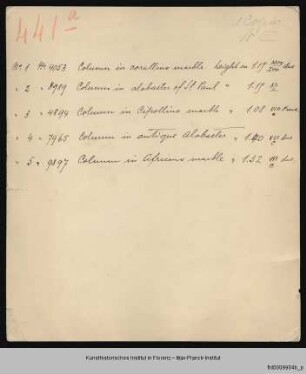 441 a
No 1 No 4053 Column in corallino marble height m 1.15
" 2 " 8989 Column in alabaster of St Paul " 1.15
" 3 " 4899 Column in Cipollino marble " 1.08
" 4 " 7965 Column in antique Alabaster " 1.40
" 5 " 9897 Column in Africano marble " 1.32
Kunsthistorisches Institut in Florenz - Max-Planck-Institut